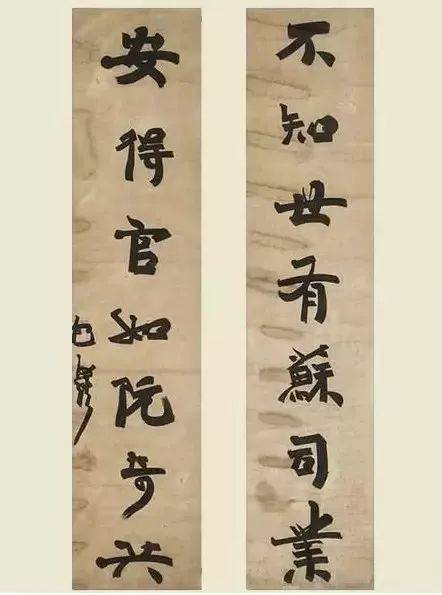 不知世有蘇司業
安得官如阮步兵